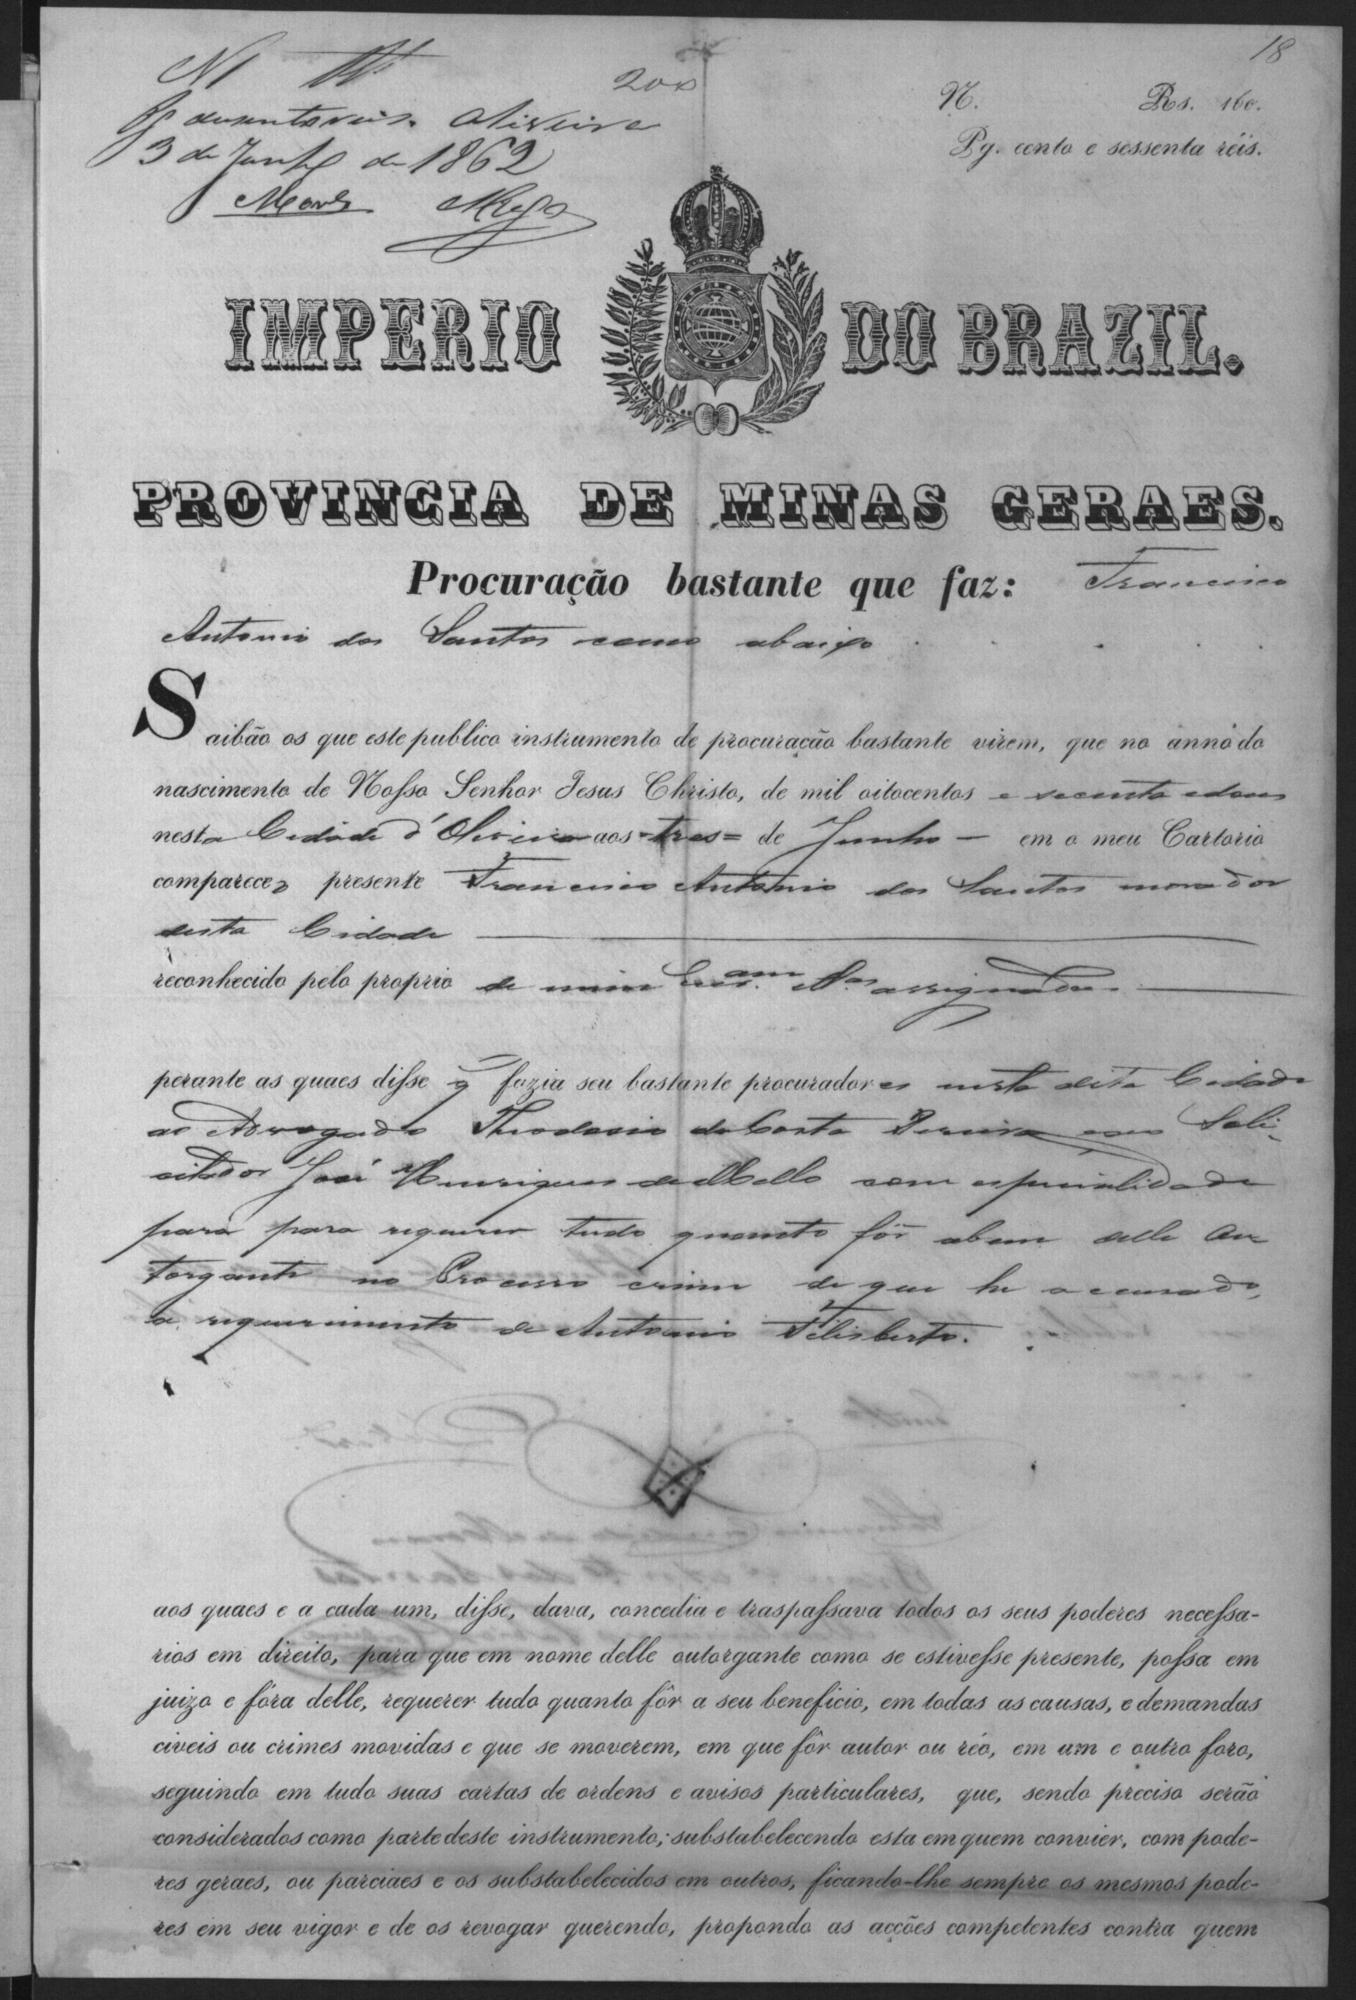 18
N 1 200
N. Rs. 160.
Rs duzentos reis. Oliveira
Pg. cento e sessenta réis.
3 de Junho de 1862
IMPERIO DO BRAZIL.
PROVINCIA DE MINAS GERAES.
Procuração bastante que faz: Francisco
Antonio dos Santos como abaixo
Saibão os que este publico instrumento de procuração bastante virem, que no anno do
nascimento de Nosso Senhor Jesus Christo, de mil oitocentos e secenta e dous
nesta Cidade d'Oliveira aos =tres= de Junho — em o meu Cartorio
comparece o presente Francisco Antonio dos Santos morador
desta Cidade
reconhecido pelo proprio de mim assignadas
perante as quaes disse q̃ fazia seu bastante procuradores nesta dita Cidade
ao Advogado Theodosio da Costa Pereira Soli-
citador José Henriques de Mello com especialidade
para para requerer tudo quanto fôr a bem delle Ou-
torgante no Processo crime de que he accusado,
a requerimento de Antonio Filisberto.
aos quaes e a cada um, disse, dava, concedia e traspassava todos os seus poderes necessa-
rios em direito, para que em nome delle outorgante como se estivesse presente, possa em
juizo e fóra delle, requerer tudo quanto fôr a seu beneficio, em todas as causas, e demandas
civeis ou crimes movidas e que se moverem, em que fôr autor ou réo, em um e outro foro,
seguindo em tudo suas cartas de ordens e avisos particulares, que, sendo preciso serão
considerados como parte deste instrumento; substabelecendo esta em quem convier, com pode-
res geraes, ou parciaes e os substabelecidos em outros, ficando-lhe sempre os mesmos pode-
res em seu vigor e de os revogar querendo, propondo as acções competentes contra quem